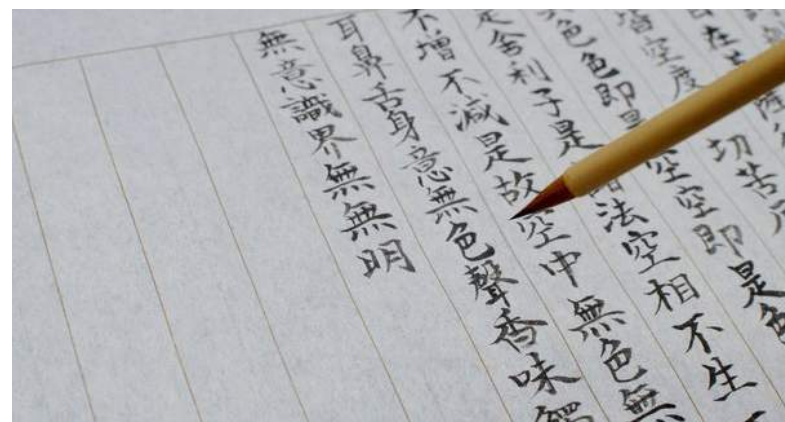 在菩薩
皆空度切苦厄
色色即是空空即是色
是舍利子是諸法空相不生
不增不減是故空中無色無
耳鼻舌身意無色聲香味觸
無意識界無無明